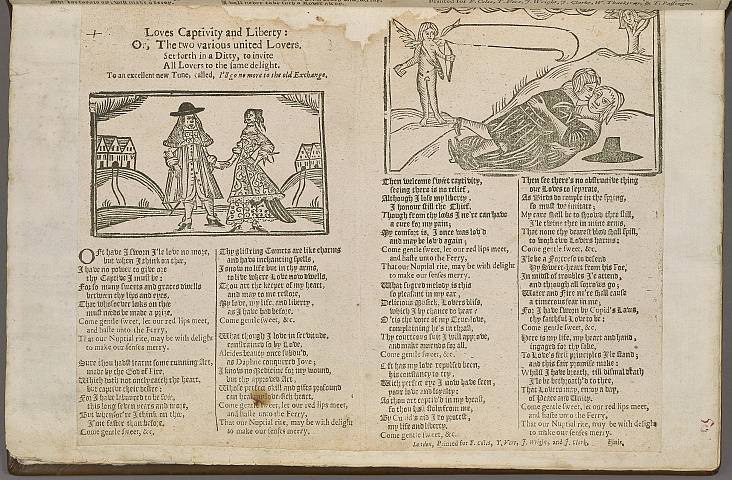 Printed for F. Coles, T. Vere, J. Wright, J. Clarke, W. Thackeray, & T. Passinger.
Loves Captivity and Liberty:
Or, The two various united Lovers,
Set forth in a Ditty, to invite
All Lovers to the same delight.
To an excellent new Tune, called, I'll go no more to the old Exchange.
OFt have I sworn I'le love no more,
but when I think on thee,
I have no power to give ore
thy Captive I must be:
For so many sweets and graces dwells
between thy lips and eyes,
That whosoever looks on thee
must needs be made a prize.
Come gentle sweet, let our red lips meet,
and haste unto the Ferry,
That our Nuptial rite, may be with delight
to make our senses merry.
Sure thou hast learnt some cunning Art,
made by the God of Fire,
Which doth not onely reach the heart,
but captive their desire:
For I have laboured to be free,
this long seven years and more,
But whensoe're I think on thee,
I'me faster than before.
Come gentle sweet, &c.
Thy glistring Comets are like charms
and have inchanting spells,
I know no life but in thy arms,
to live where Love now dwells,
Thou art the keeper of my heart,
and may to me restore,
My love, my life, and liberty,
as I have had before.
Come gentle sweet, &c.
What though I love in servitude,
constrained is by Love,
Alcides beauty once subdu'd,
as Daphne conquered Jove;
I know no Medicine for my wound,
but thy approved Art,
Whose perfect skill and gifts profound
can heal my wounded heart.
Come gentle sweet, let our red lips meet,
and haste unto the Ferry,
That our Nuptial rite, may be with delight
to make our senses merry.
Then welcome sweet captivity,
seeing there is no relief,
Although I lose my liberty,
I honour still the Thief.
Though from thy looks I ne're can have
a cure for my pain;
My comfort is, I once was lov'd
and may be lov'd again;
Come gentle sweet, let our red lips meet,
and haste unto the Ferry,
That our Nuptial rite, may be with delight
to make our senses merry.
What sugred melody is this
so pleasant in my ear,
Delicious Musick, Lovers bliss,
which I by chance to hear
O'tis the voice of my True-love,
complaining he's in thrall,
Thy courteous suit I will approve,
and make amends for all.
Come gentle sweet, &c.
Oft has my love repulsed been,
his constancy to try,
With perfect eye I now have seen,
your love and loyalty:
As thou art captiv'd in my breast,
so thou hast stoln from me,
By Cupid's and I do protest,
my life and liberty.
Come gentle sweet, &c.
Then see there's no obstructive thing
our Loves to separate,
As Birds do couple in the spring,
so must we imitate;
My care shall be to shroud thee still,
I'le twine thee in mine arms,
That none thy dearest blood shall spill,
to work our Lovers harms:
Come gentle sweet, &c.
I'le be a Fortress to defend
My Sweet-heart from his Foe,
In midst of troubles I'le attend,
and through all sorrows go;
Water and Fire ne're shall cause
a timerous fear in me;
For I have sworn by Cupid's Laws,
thy faithful Love to be:
Come gentle sweet, &c.
Here is my life, my heart and hand,
ingaged for thy sake,
To Love's first principles I'le stand;
and this sure promise make:
While I have breath, till dismal death
I'le be betroath'd to thee,
That Lovers may, enjoy a day,
of Peace and Unity.
Come gentle sweet, let our red lips meet,
and haste unto the Ferry,
That our Nuptial rite, may be with delight
to make our senses merry.
London, Printed for F. Coles, T. Vere, J. Wright, and J. Clark. Finis.